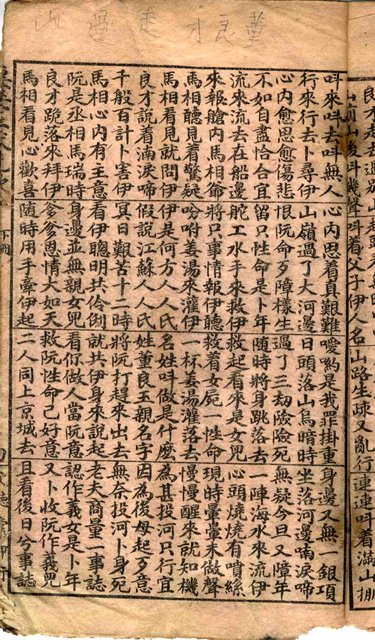 董良才走過山
叫來叫去叫無人 心內思着真艱難 喲喲是我罪掛重 身邊又無一銀項
行來行去卜尋伊 山嶺過了大河邊 日頭落山烏暗時 坐落河邊喃淚啼
心內愈思愈傷悲 恨阮命歹障樣生 過了三劫險險死 無疑今旦又障年
不如自盡恰合宜 留只性命是卜年 隨時將身跳落去 一陣海水來流伊
流來流去在船邊 舵工水手來救伊 救起看來是女兒 心頭燒燒有噴絲
來報艙內馬相爺 將只事情報伊聽 救着女屍一性命 現時暈暈未做聲
馬相聽見着驚疑 吩咐姜湯來灌伊 一杯姜湯灌落去 慢慢醒來就知機
馬相看見就問伊 伊是何方人人氏 名姓叫做是什麼 為甚投河只行宜
良才說着滿淚啼 假說江蘇人人氏 姓董良玉親名字 因為後母起歹意
千般百計卜害伊 冥日艱苦十二時 將阮打趕來出去 無奈投河卜身死
馬相心內有主意 看伊聰明共伶俐 就共伊身來說起 老夫商量一事誌
阮是丞相馬瑞時 身邊並無親女兒 看你做人當阮意 認作義女是卜年
良才跪落來拜伊 爹爹恩情大如天 救阮性命已好意 又卜收阮作義兒
馬相看見心歡喜 隨時用手牽伊起 二人同上京城去 且看後日兮事誌